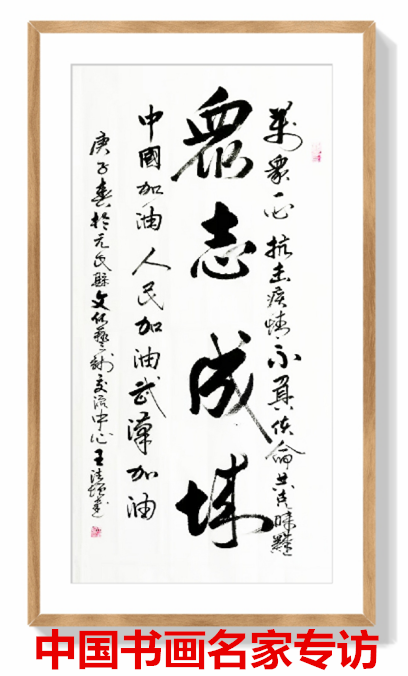 萬眾一心抗击疫情不負使命共克時艱
眾志成城
中國加油人民加油武漢加油
庚子春於元氏縣文化藝術交流中心王
中国书画名家专访